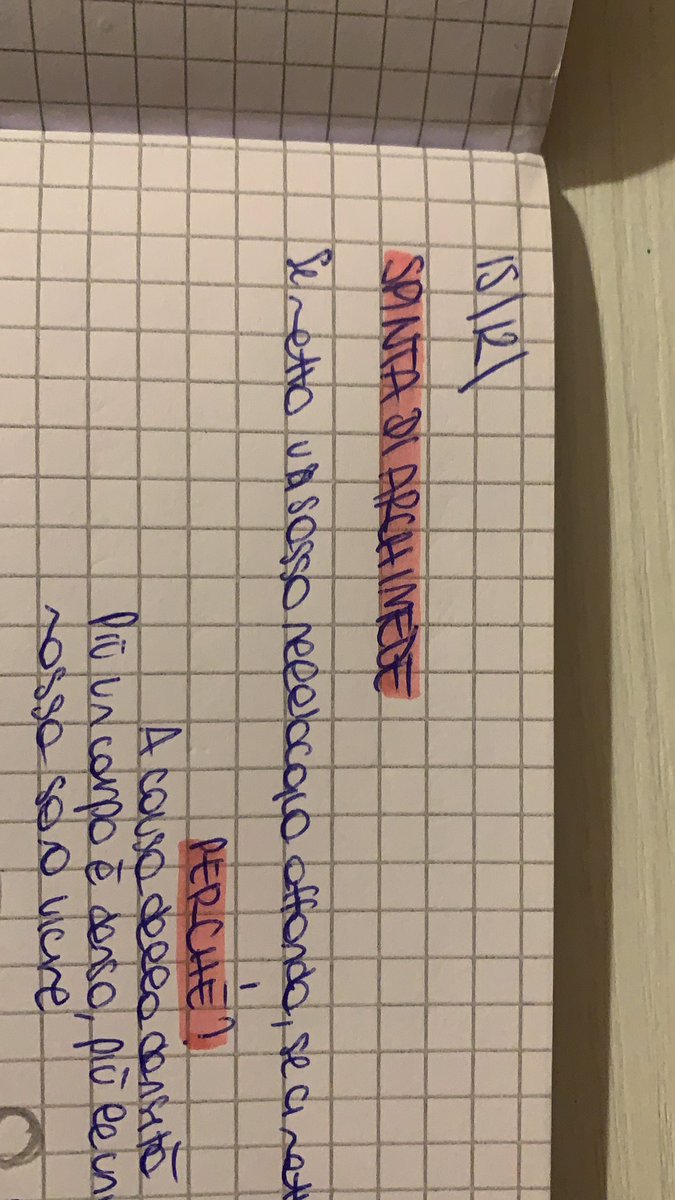 15/12/
SPINTA DI ARCHIMEDE
Se metto un sasso nell'acqua affonda, se ci mett
PERCHÉ?
A causa della densità
più un corpo è denso, più le m
masse sono vicine